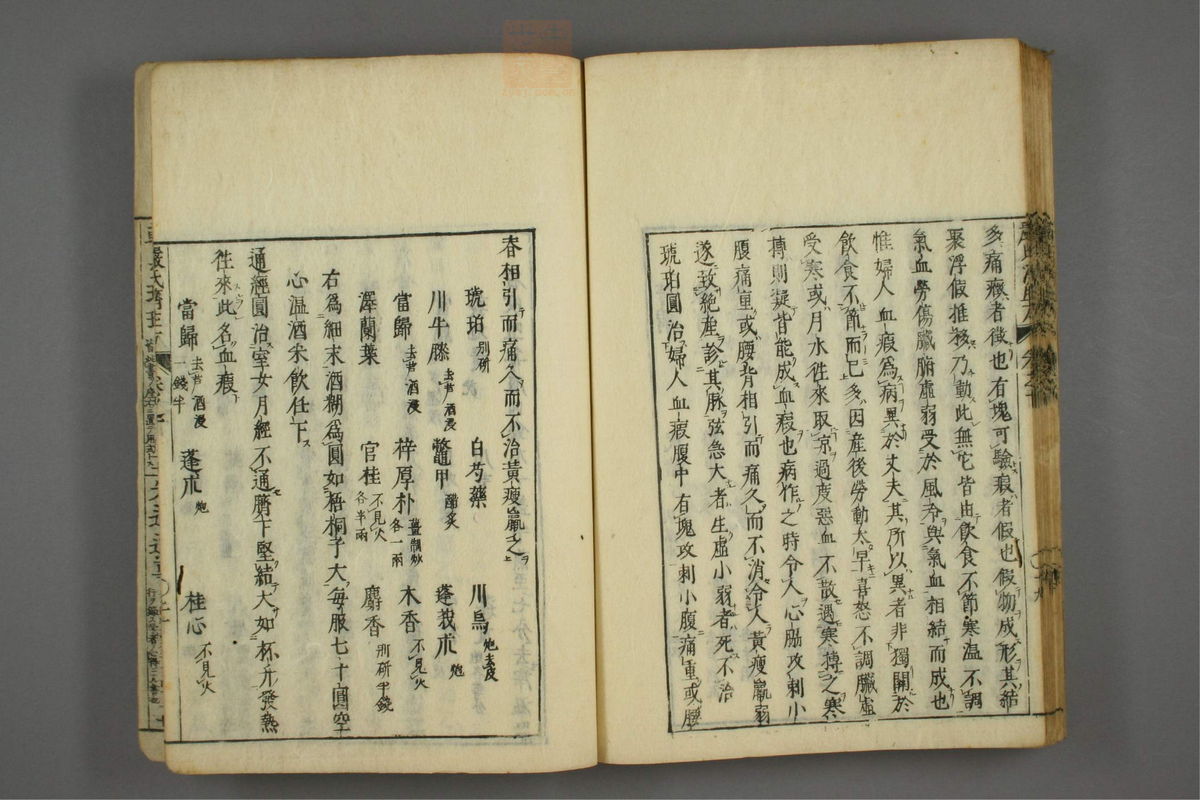 多痛癥者徵也有塊可驗瘕者假也假物成形其結
聚浮假推移乃動此無它皆由飲食不節寒温不調
氣血勞傷臟腑虛弱受於風冷與氣血相結而成也
惟婦人血瘕爲病異於丈夫其所以異者非獨關於
飲食不節而已多因産後勞動太早喜怒不調臟虛
受寒或月水徃來取凉過度惡血不散遇寒搏之寒
搏則凝皆能成血瘕也病作之時令人心腸攻刺小
腹痛重或腰背相引而痛久而不消令人黃瘦羸弱
遂致絶産診其脉弦急大者生虛小弱者死不治
琥珀圓治婦人血瘕腹中有塊攻刺小腹痛重或腰
脊相引而痛久而不治黃瘦羸乏
琥珀別研 白芍藥 川烏炮去皮
川牛膝去芦酒浸 鼈甲醋炙 蓬莪朮炮
當歸去芦酒浸 梓厚朴薑制炒各一兩 木香不見火
澤蘭葉 官桂不見火各半兩 麝香別研半錢
右爲細末酒糊爲圓如梧桐子大每服七十圓空
心温酒米飲任下
通經圓治室女月經不通臍下堅結大如杯升發熱
徃來此名血瘕
當歸去芦酒浸一錢半 蓬朮炮 桂心不見火